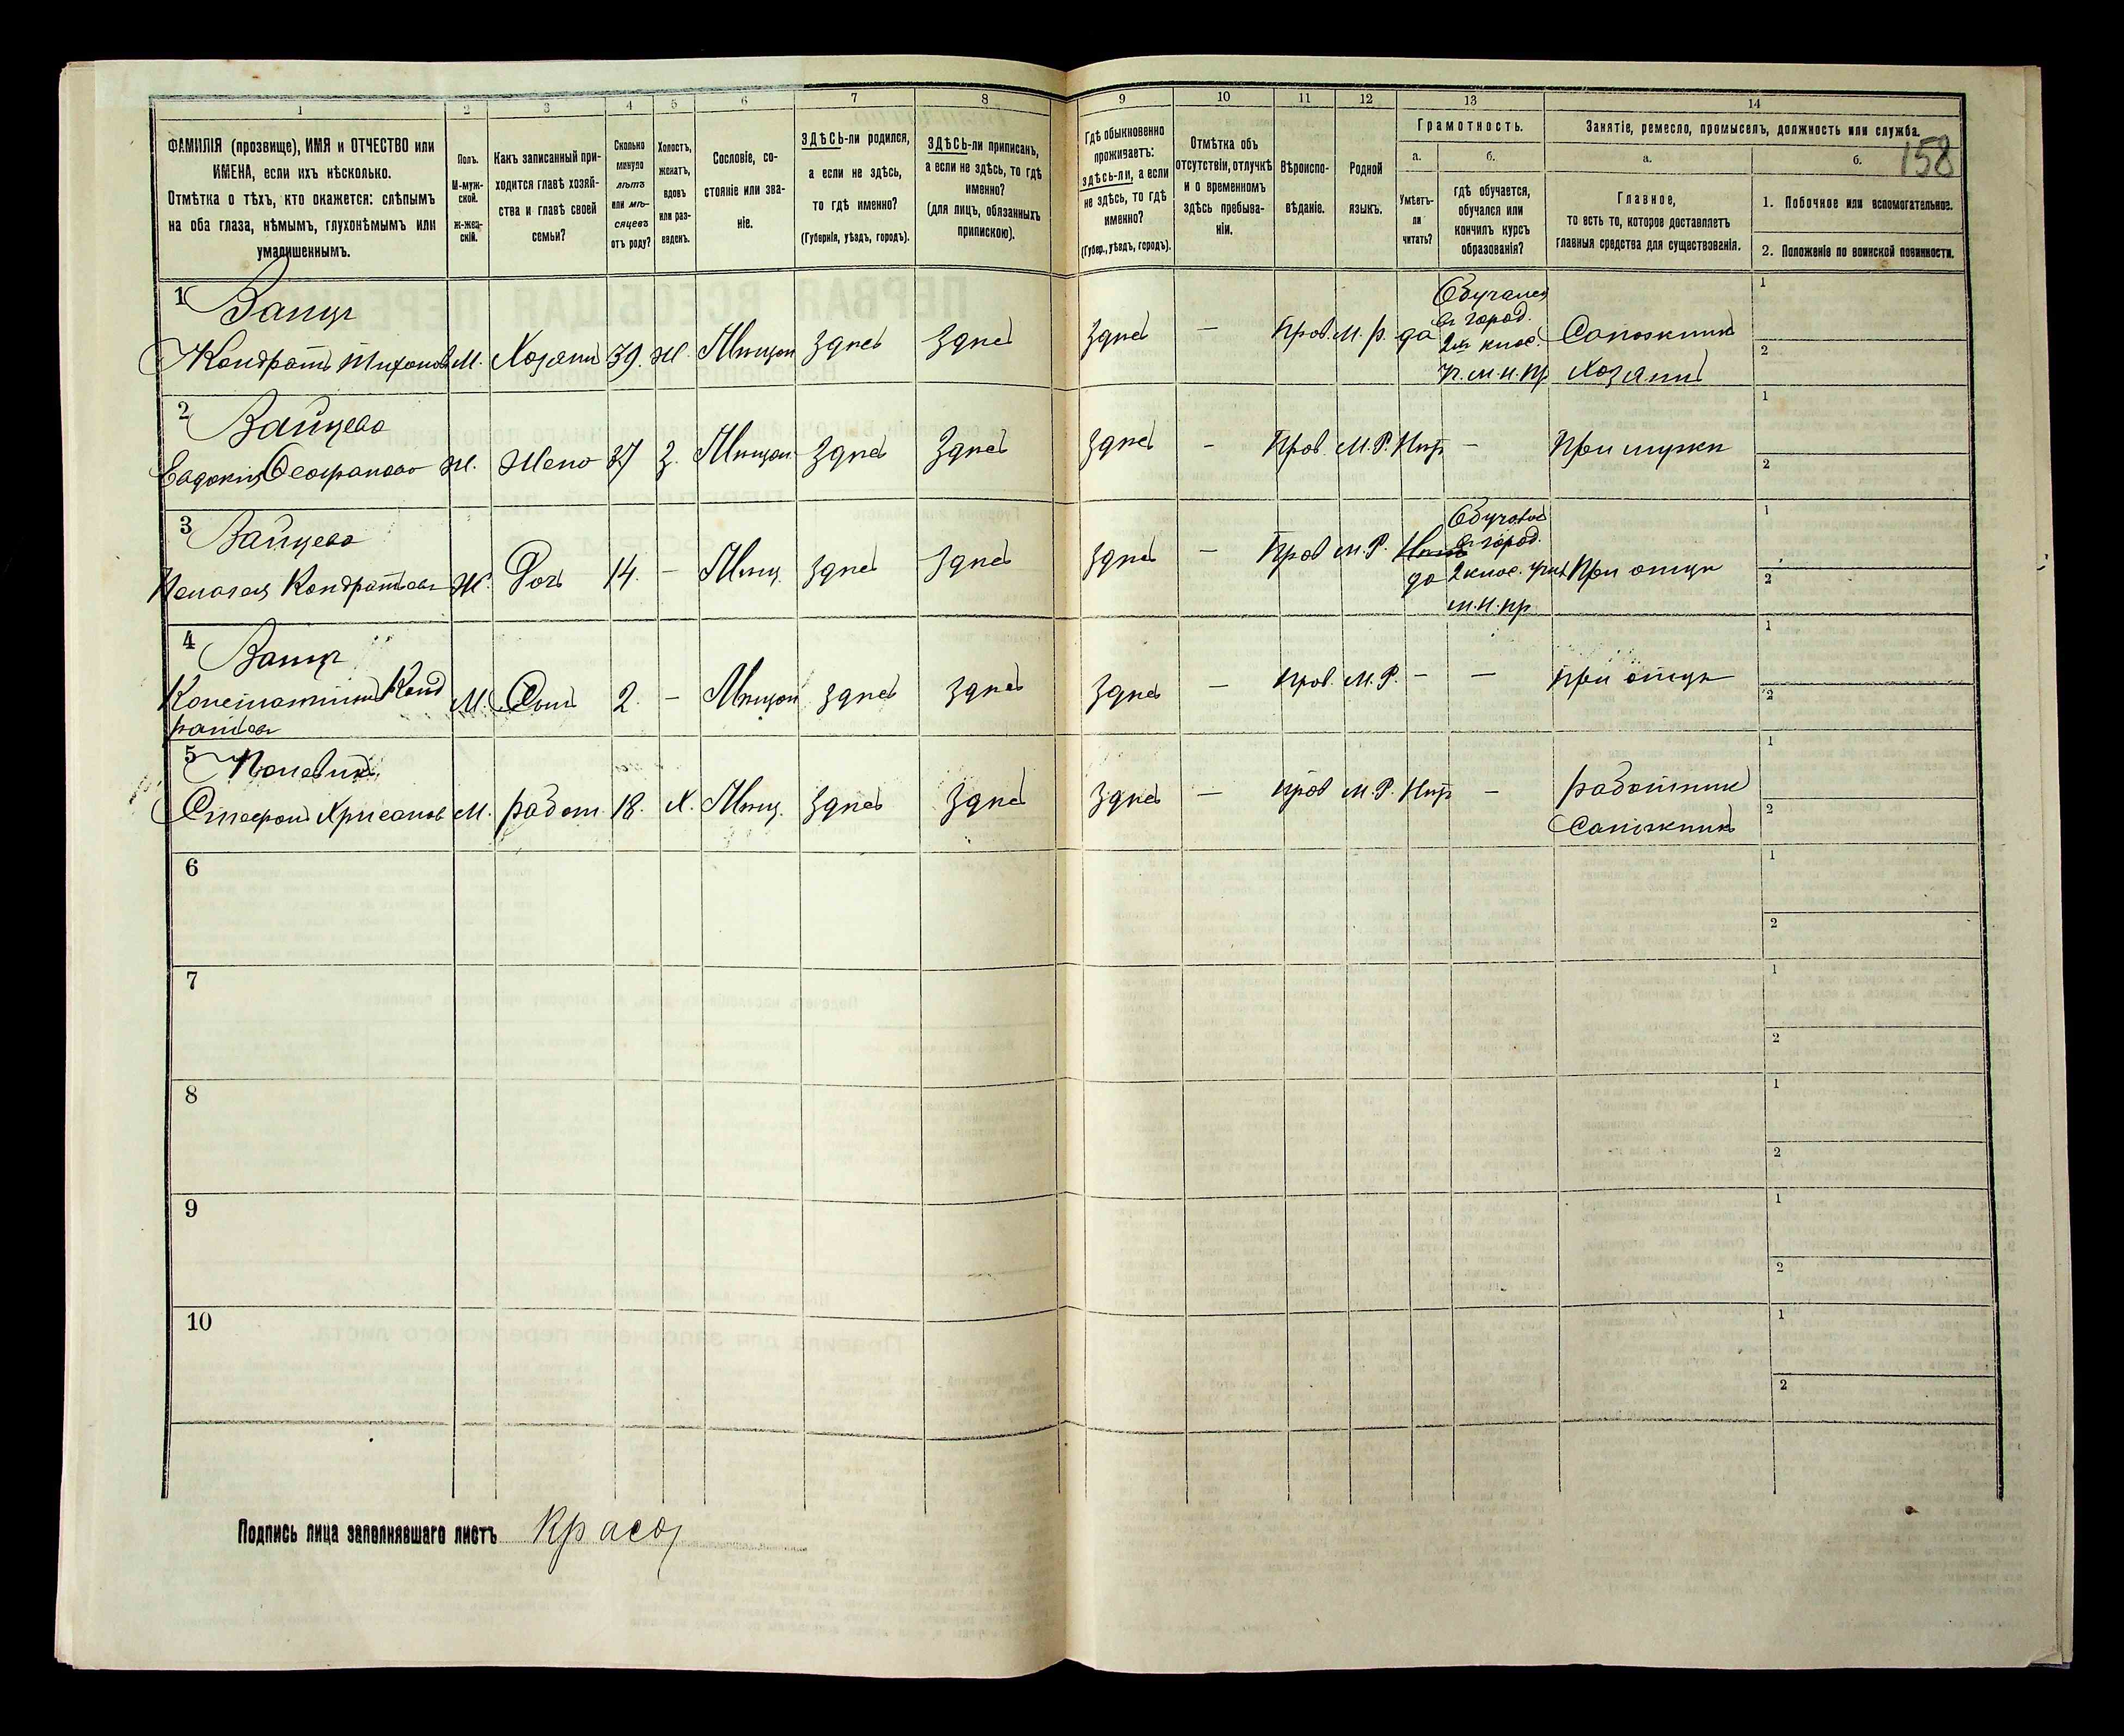 1 2 3 4 5 6 7 8 9 10 11 12 13 14
ФАМИЛІЯ (прозвище), ИМЯ и ОТЧЕСТВО или
ИМЕНА, если ихъ нѣсколько.
Отмѣтка о тѣхъ, кто окажется: слѣпымъ
на оба глаза, нѣмымъ, глухонѣмымъ или
умалишеннымъ.
Полъ.
М-муж-
ской.
ж-жен-
скій.
Какъ записанный при-
ходится главѣ хозяй-
ства и главѣ своей
семьи?
Сколько
минуло
лѣтъ
или мѣ-
сяцевъ
отъ роду?
Холостъ,
женатъ,
вдовъ
или раз-
веденъ.
Сословіе, со-
стояніе или зва-
ніе.
ЗДѢСЬ-ли родился,
а если не здѣсь,
то гдѣ именно?
(Губернія, уѣздъ, городъ).
ЗДѢСЬ-ли приписанъ,
а если не здѣсь, то гдѣ
именно?
(для лицъ, обязанныхъ
припискою).
Гдѣ обыкновенно
проживаетъ:
здѣсь-ли, а если
не здѣсь, то гдѣ
именно?
(Губер., уѣздъ, городъ).
Отмѣтка объ
отсутствіи, отлучкѣ
и о временномъ
здѣсь пребыва-
ніи.
Вѣроиспо-
вѣданіе.
Родной
языкъ.
Грамотность.
а.
Умѣетъ-
ли
читать?
б.
гдѣ обучается,
обучался или
кончилъ курсъ
образованія?
Занятіе, ремесло, промыселъ, должность или служба.
158
а.
Главное,
то есть то, которое доставляетъ
главныя средства для существованія.
б.
1. Побочное или вспомогательное.
2. Положеніе по воинской повинности.
1
Кондратъ Тихоновъ М. Хозяинъ 39. Ж. Мѣщан здѣсь здѣсь здѣсь — Прав. М. р. да
Обучался
въ город.
2хъ клас.
м. н. пр
Сапожникъ
Хозяинъ
1
2
2 Зайцева
Евдокия Ж. Жена 37 З. Мѣщан здѣсь здѣсь здѣсь - Прав. М. Р. Нѣт — При мужѣ
1
2
3 Зайцева
Пелагея Кондратьева Ж. Дочь 14. — Мѣщ. здѣсь здѣсь здѣсь — Прав М. Р. да
въ город.
2 клас. учил
м. н. пр
При отцѣ
1
2
4
Константинъ Конд
ратьев М. Сынъ 2. — Мѣщан здѣсь здѣсь здѣсь — прав. М. Р. — — при отцѣ
1
2
5
Стефанъ Хрисанов М. работ. 18. Х. Мѣщ. здѣсь здѣсь здѣсь — прав М. Р. Нѣт — работник
Сапожникъ
1
2
6
1
2
7
1
2
8
1
2
9
1
2
10
1
2
Подпись лица заполнявшаго листъ